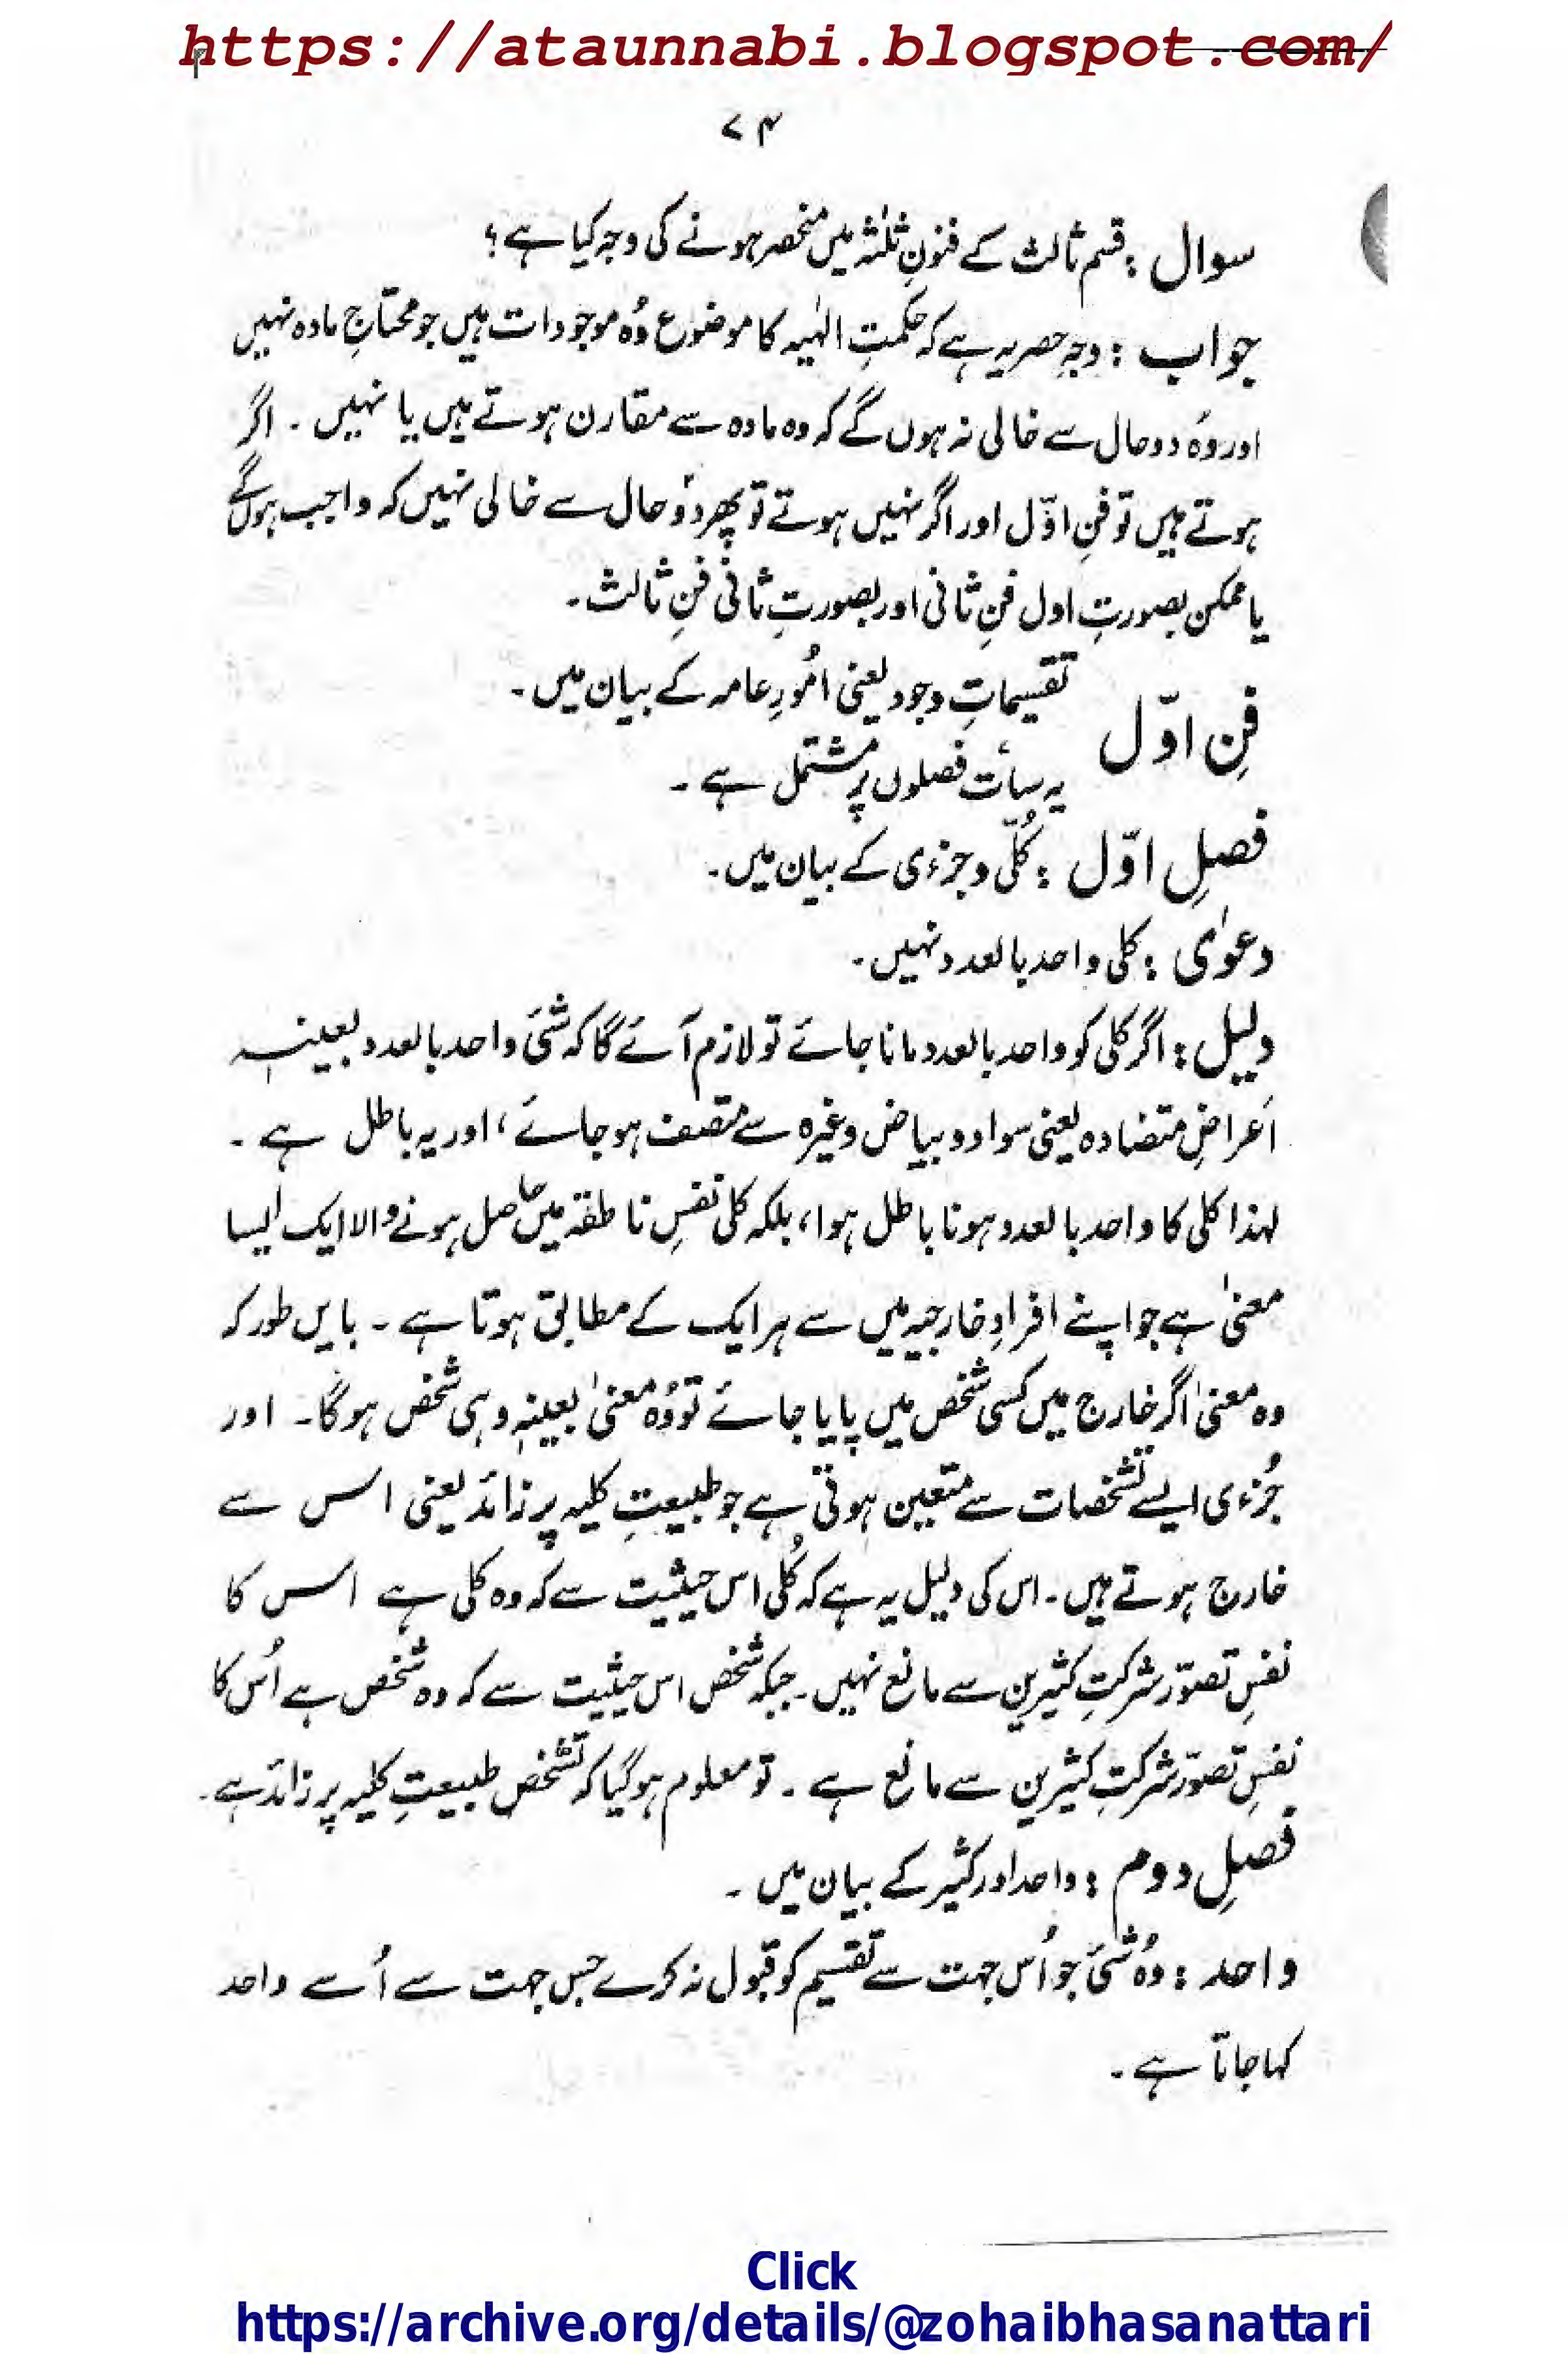 https://ataunnabi.blogspot.com/
۷۴
سوال : قسم ثالث کے فنونِ ثلٰثہ میں منحصر ہونے کی وجہ کیا ہے ؟
جواب : وجہِ حصر یہ ہے کہ حکمتِ الٰہیہ کا موضوع وُہ موجودات ہیں جو محتاجِ مادہ نہیں
اور وُہ دو حال سے خالی نہ ہوں گے کہ وہ مادہ سے مقارن ہوتے ہیں یا نہیں ۔ اگر
ہوتے ہیں تو فنِ اوّل اور اگر نہیں ہوتے تو پھر دُو حال سے خالی نہیں کہ واجب ہوں گے
یا ممکن بصورتِ اول فنِ ثانی اور بصورتِ ثانی فنِ ثالث ۔
فنِ اوّل تقسیماتِ وجود یعنی امُورِ عامہ کے بیان میں ۔
یہ سات فصلوں پر مشتمل ہے ۔
فصلِ اوّل : کُلّی و جزءی کے بیان میں ۔
دعوٰی : کلی واحد بالعدد نہیں ۔
دلیل : اگر کلی کو واحد بالعدد مانا جائے تو لازم آئے گا کہ شئ واحد بالعدد بعینہٖ
اَعراضِ متضادہ یعنی سواد و بیاض وغیرہ سے متصف ہو جائے ، اور یہ باطل ہے ۔
لہذا کلی کا واحد بالعدد ہونا باطل ہوا ، بلکہ کلی نفسِ ناطقہ میں حاصل ہونے والا ایک ایسا
معنیٰ ہے جو اپنے افرادِ خارجیہ میں سے ہر ایک کے مطابق ہوتا ہے ۔ بایں طور کہ
وہ معنیٰ اگر خارج میں کسی شخص میں پایا جائے تو وُہ معنیٰ بعینہٖ وہی شخص ہوگا ۔ اور
جُزءی ایسے تشخصات سے متعین ہوتی ہے جو طبیعتِ کلیہ پر زائد یعنی اس سے
خارج ہوتے ہیں ۔ اس کی دلیل یہ ہے کہ کُلی اس حیثیت سے کہ وہ کلی ہے اس کا
نفسِ تصوّر شرکتِ کثیرین سے مانع نہیں ۔ جبکہ شخص اس حیثیت سے کہ وہ شخص ہے اُس کا
نفسِ تصوّر شرکتِ کثیرین سے مانع ہے ۔ تو معلوم ہوگیا کہ تشخص طبیعتِ کلیہ پر زائد ہے ۔
فصلِ دوم : واحد اور کثیر کے بیان میں ۔
واحد : وُہ شئ جو اُس جہت سے تقسیم کو قبول نہ کرے جس جہت سے اُسے واحد
کہا جاتا ہے ۔
Click
https://archive.org/details/@zohaibhasanattari